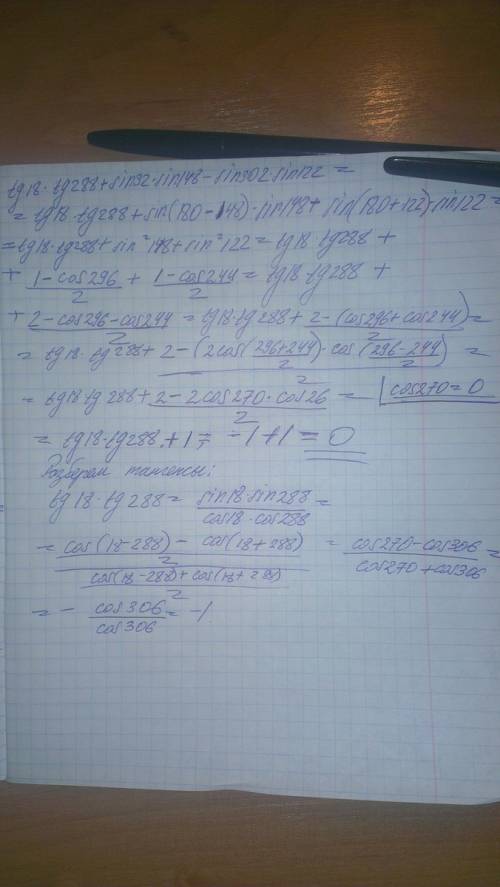 tg18·tg288+sin32·sin148-sin302·sin122=
=tg18·tg288+sin(180-148)·sin148+sin(180+122)·sin122=
=tg18·tg288+sin²148+sin²122=tg18·tg288+
+ (1-cos296)/2 + (1-cos244)/2 = tg18·tg288+
+ (2-cos296-cos244)/2 = tg18·tg288+ (2-(cos296+cos244))/2 =
= tg18·tg288+ (2-(2cos((296+244)/2)·cos((296-244)/2))/2 =
= tg18·tg288+ (2-2cos270·cos26)/2 = |cos270=0
= tg18·tg288+1= -1+1=0
Разберем тангенсы:
tg18·tg288= (sin18·sin288)/(cos18·cos288) =
= ((cos(18-288)-cos(18+288))/2)/((cos(18-288)+cos(18+288))/2) = (cos270-cos306)/(cos270+cos306) =
= - cos306/cos306 = -1